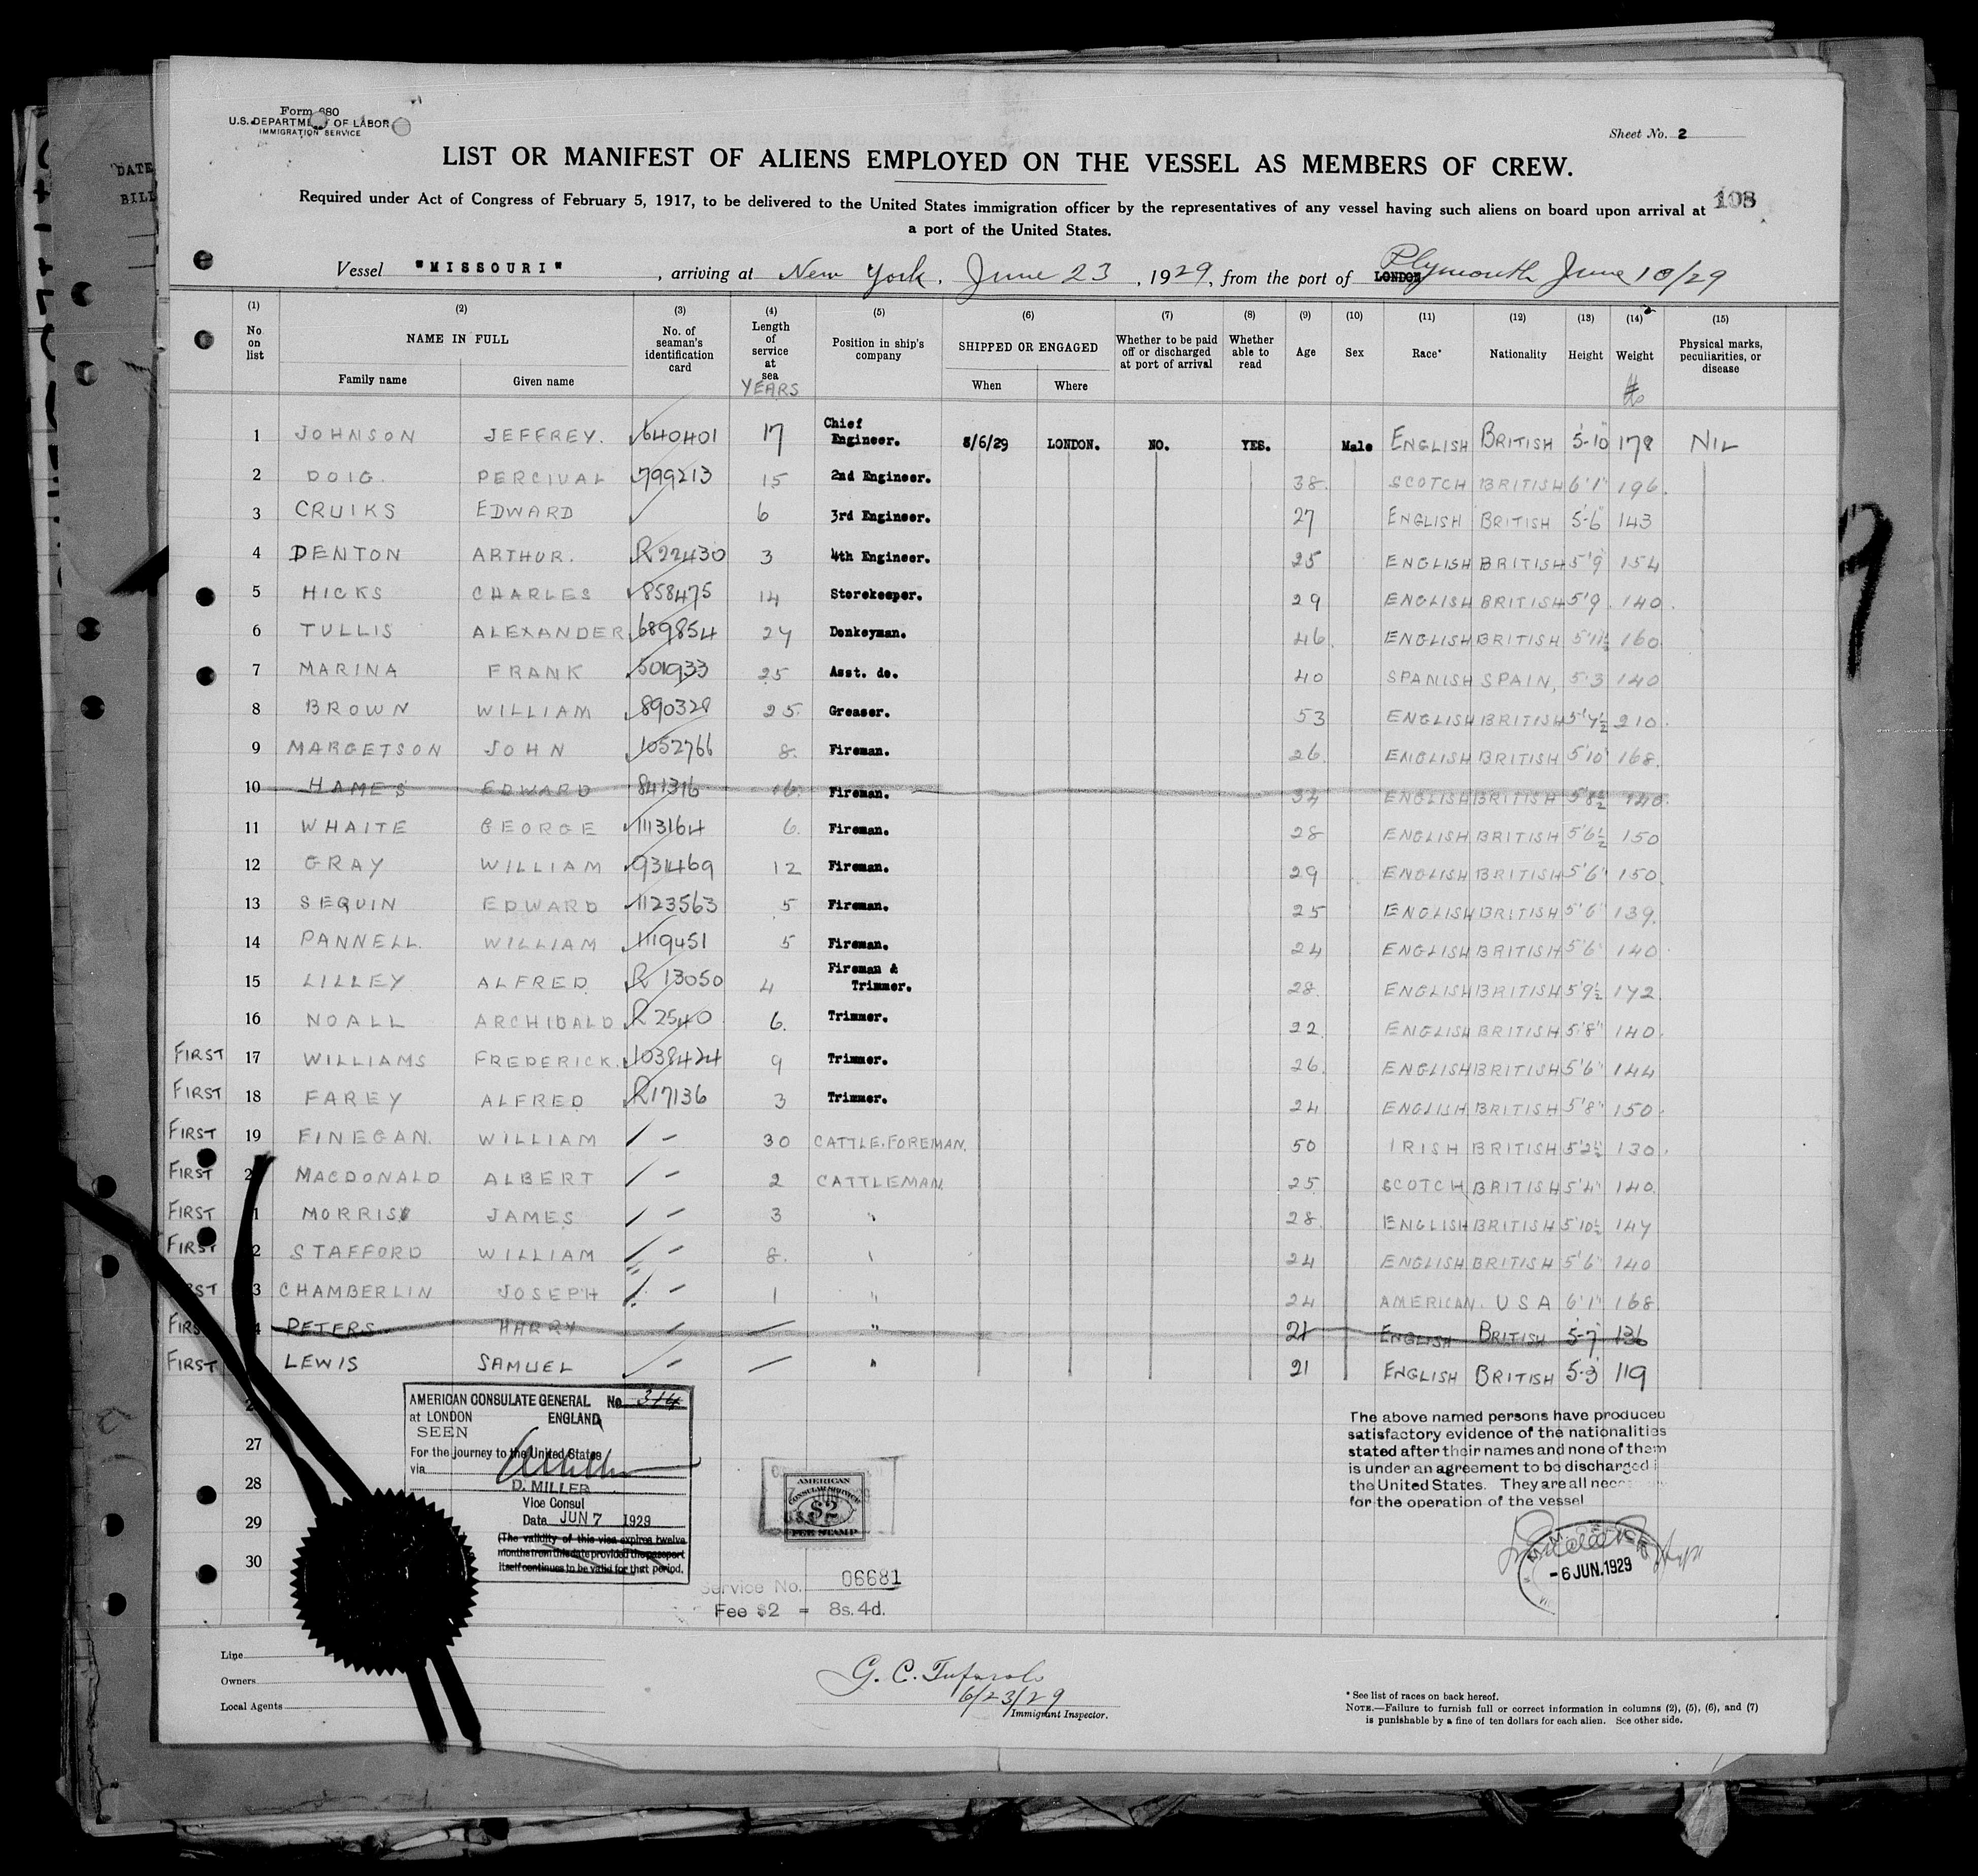 Form 680
U.S. DEPARTMENT OF LABOR
IMMIGRATION SERVICE
Sheet No. 2
LIST OR MANIFEST OF ALIENS EMPLOYED ON THE VESSEL AS MEMBERS OF CREW.
Required under Act of Congress of February 5, 1917, to be delivered to the United States immigration officer by the representatives of any vessel having such aliens on board upon arrival at
a port of the United States.
108
DATE
BILL
Vessel "MISSOURI", arriving at New York, June 23, 1929, from the port of LONDON Plymouth June 10/29
(1) (2) (3) (4) (5) (6) (7) (8) (9) (10) (11) (12) (13) (14) (15)
No on list NAME IN FULL Family name Given name No. of seaman's identification card Length of service at sea YEARS Position in ship's company SHIPPED OR ENGAGED When Where Whether to be paid off or discharged at port of arrival Whether able to read Age Sex Race* Nationality Height Weight Physical marks, peculiarities, or disease
1 JOHNSON JEFFREY. 640401 17 Chief Engineer. 8/6/29 LONDON. NO. YES. Male ENGLISH BRITISH 5-10 178 NIL
2 DOIG. PERCIVAL 799213 15 2nd Engineer. 38. SCOTCH BRITISH 6'1" 196.
3 CRUIKS EDWARD 6 3rd Engineer. 27 ENGLISH BRITISH 5-6" 143
4 DENTON ARTHUR. R22430 3 4th Engineer. 25 ENGLISH BRITISH 5'9" 154
5 HICKS CHARLES 858475 14 Storekeeper. 29 ENGLISH BRITISH 5'9 140.
6 TULLIS ALEXANDER 689854 27 Donkeyman. 46. ENGLISH BRITISH 5'11½ 160
7 MARINA FRANK 501933 25 Asst. do. 40 SPANISH SPAIN, 5'3 140
8 BROWN WILLIAM 890328 25. Greaser. 53 ENGLISH BRITISH 5'7½ 210.
9 MARGETSON JOHN 1052766 8. Fireman. 26. ENGLISH BRITISH 5'10" 168.
10 HAMES EDWARD 841316 16. Fireman. 34 ENGLISH BRITISH 5'8½ 140.
11 WHAITE GEORGE 1113164 6. Fireman. 28 ENGLISH BRITISH 5'6½ 150
12 GRAY WILLIAM 931469 12 Fireman. 29 ENGLISH BRITISH 5'6" 150.
13 SEQUIN EDWARD 1123563 5 Fireman. 25 ENGLISH BRITISH 5'6" 139.
14 PANNELL. WILLIAM 1119451 5 Fireman. 24 ENGLISH BRITISH 5'6" 140.
15 LILLEY ALFRED R 13050 4 Fireman & Trimmer. 28. ENGLISH BRITISH 5'9½ 172.
16 NOALL ARCHIBALD. R 2540 6. Trimmer. 22. ENGLISH BRITISH 5'8" 140.
FIRST 17 WILLIAMS FREDERICK. 1038424 9 Trimmer. 26. ENGLISH BRITISH 5'6" 144
FIRST 18 FAREY ALFRED R17136 3 Trimmer. 24 ENGLISH BRITISH 5'8" 150.
FIRST 19 FINEGAN. WILLIAM - 30 CATTLE. FOREMAN. 50 IRISH BRITISH 5'2½ 130.
FIRST 2 MACDONALD ALBERT - 2 CATTLEMAN. 25 SCOTCH BRITISH 5'4" 140.
FIRST 1 MORRIS JAMES - 3 " 28. ENGLISH BRITISH 5'10½ 147
FIRST 2 STAFFORD WILLIAM - 8. " 24 ENGLISH BRITISH 5'6" 140
FIRST 3 CHAMBERLIN JOSEPH - 1 " 24 AMERICAN. USA 6'1" 168.
FIRST 4 PETERS HARRY - — " 21 ENGLISH BRITISH 5-7 136
FIRST LEWIS SAMUEL - — " 21 ENGLISH BRITISH 5-3 119
27
28
29
30
AMERICAN CONSULATE GENERAL No. 314
at LONDON ENGLAND
SEEN
For the journey to the United States
via
D. MILLER
Vice Consul
Date JUN 7 1929
(The validity of this visa expires twelve
months from this date provided the passport
itself continues to be valid for that period.
AMERICAN
CONSULAR SERVICE
$2
FEE STAMP
Service No. 06681
Fee $2 = 8s. 4d.
The above named persons have produced
satisfactory evidence of the nationalities
stated after their names and none of them
is under an agreement to be discharged i
the United States. They are all nec
for the operation of the vessel
-6 JUN.1929
Line
Owners
Local Agents
G. C.
6/23/29
Immigrant Inspector.
* See list of races on back hereof.
NOTE.—Failure to furnish full or correct information in columns (2), (5), (6), and (7)
is punishable by a fine of ten dollars for each alien. See other side.